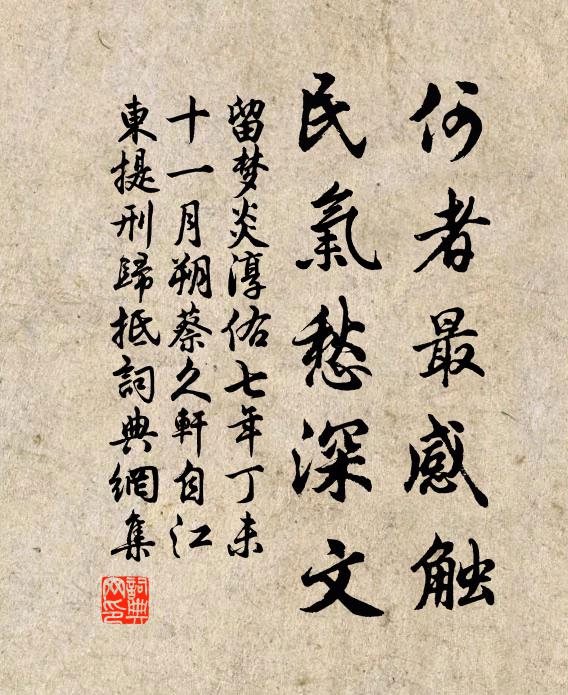 何者最感触
民氣愁深文
留梦炎淳佑七年丁未
十一月朔蔡久軒自江
東提刑歸抵詞典網集
詞典网印